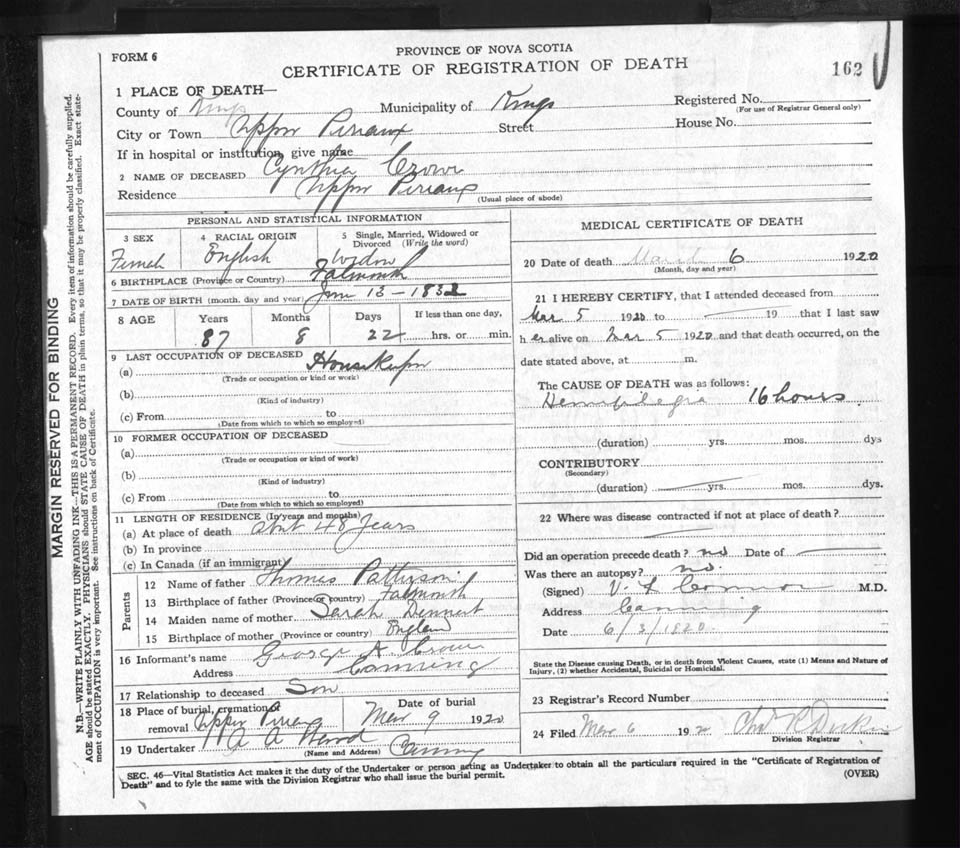 FORM 6
PROVINCE OF NOVA SCOTIA
CERTIFICATE OF REGISTRATION OF DEATH
162
1 PLACE OF DEATH—
County of Kings Municipality of Kings Registered No.
(For use of Registrar General only)
City or Town Upper Pereaux Street House No.
If in hospital or institution, give name
2 NAME OF DECEASED Cynthia Crowe
Residence Upper Pereaux
(Usual place of abode)
PERSONAL AND STATISTICAL INFORMATION
3 SEX Female
4 RACIAL ORIGIN English
5 Single, Married, Widowed or Divorced (Write the word) Widow
6 BIRTHPLACE (Province or Country) Falmouth
7 DATE OF BIRTH (month, day and year) June 13-1832
8 AGE Years Months Days If less than one day,
87 8 22 hrs. or min.
9 LAST OCCUPATION OF DECEASED
(a) Housekeeper
(Trade or occupation or kind or work)
(b)
(Kind of industry)
(c) From to
(Date from which to which so employed)
10 FORMER OCCUPATION OF DECEASED
(a)
(Trade or occupation or kind of work)
(b)
(Kind of industry)
(c) From to
(Date from which to which so employed)
11 LENGTH OF RESIDENCE (In years and months)
(a) At place of death abt 48 Years
(b) In province
(c) In Canada (if an immigrant)
Parents
12 Name of father Thomas Patterson
13 Birthplace of father (Province or country) Falmouth
14 Maiden name of mother Sarah
15 Birthplace of mother (Province or country) England
16 Informant's name George A Crowe
Address Canning
17 Relationship to deceased Son
18 Place of burial, cremation or removal Upper Pereaux
Date of burial Mar 9 1920
19 Undertaker A A Ward Canning
(Name and Address)
MEDICAL CERTIFICATE OF DEATH
20 Date of death March 6 1920
(Month, day and year)
21 I HEREBY CERTIFY, that I attended deceased from
Mar 5 1920 to — 19 that I last saw
h er alive on Mar 5 1920 and that death occurred, on the
date stated above, at m.
The CAUSE OF DEATH was as follows:
Hemiplegia 16 hours
(duration) yrs. mos. dys
CONTRIBUTORY
(Secondary)
(duration) yrs. mos. dys.
22 Where was disease contracted if not at place of death?
Did an operation precede death? no Date of —
Was there an autopsy? no.
(Signed) M.D.
Address Canning
Date 6/3/1920.
State the Disease causing Death, or in death from Violent Causes, state (1) Means and Nature of
Injury, (2) whether Accidental, Suicidal or Homicidal.
23 Registrar's Record Number
24 Filed Mar 6 1920
Division Registrar
SEC. 46—Vital Statistics Act makes it the duty of the Undertaker or person acting as Undertaker to obtain all the particulars required in the "Certificate of Registration of
Death" and to fyle the same with the Division Registrar who shall issue the burial permit.
(OVER)
MARGIN RESERVED FOR BINDING
N.B.—WRITE PLAINLY WITH UNFADING INK—THIS IS A PERMANENT RECORD. Every item of information should be carefully supplied.
AGE should be stated EXACTLY. PHYSICIANS should STATE CAUSE OF DEATH in plain terms, so that it may be properly classified. Exact state-
ment of OCCUPATION is very important. See instructions on back of Certificate.